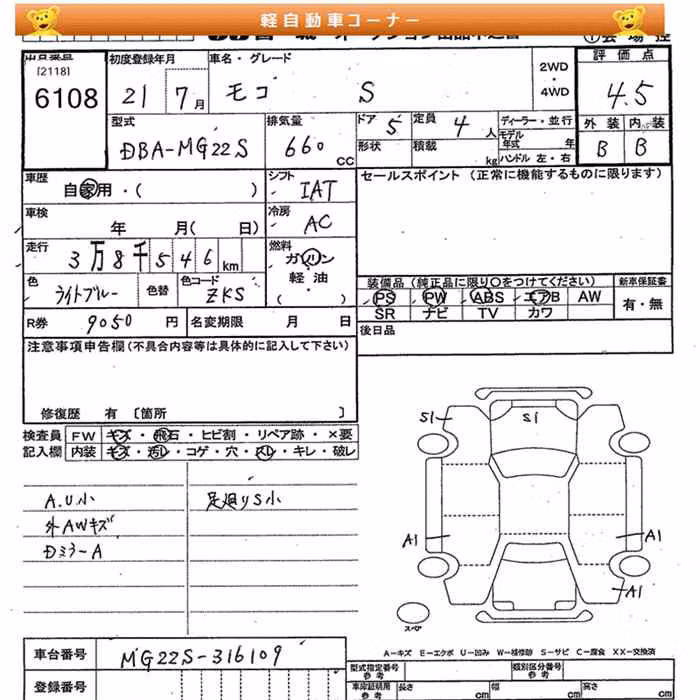 軽自動車コーナー
[2118]
6108
初度登録年月
21 7月
車名・グレード
モコ S
2WD・4WD
評価点
4.5
外装 内装
B B
型式
DBA-MG22S
排気量
660 cc
ドア 5
定員 4 人
ディーラー・並行
形状
積載 kg
モデル年式 年
ハンドル 左・右
車歴
自家用・( )
シフト
IAT
セールスポイント (正常に機能するものに限ります)
車検
年 月( 日)
冷房
AC
走行
3万8千546km
燃料
ガソリン
軽・油
・( )
色
ライトブルー
色替
色コード
ZKS
装備品 (純正品に限り〇をつけてください)
新車保証書
PS PW ABS エアB AW
有・無
SR ナビ TV カワ
R券 9050 円
名変期限 月 日
後日品
注意事項申告欄(不具合内容等は具体的に記入して下さい)
修復歴 有 〔箇所 〕
検査員 FW キズ・飛石・ヒビ割・リペア跡・×要
記入欄 内装 キズ・汚レ・コゲ・穴・スレ・キレ・破レ
A.U小
足廻りS小
外AWキズ
Dミラ-A
S1
S1
A1
A1
A1
スペア
A-キズ E-エクボ U-凹み W-補修跡 S-サビ C-腐食 XX-交換済
車台番号
MG22S-316109
登録番号
型式指定番号
参考
類別区分番号
参考
車庫証明用
参考
長さ cm
幅 cm
高さ cm